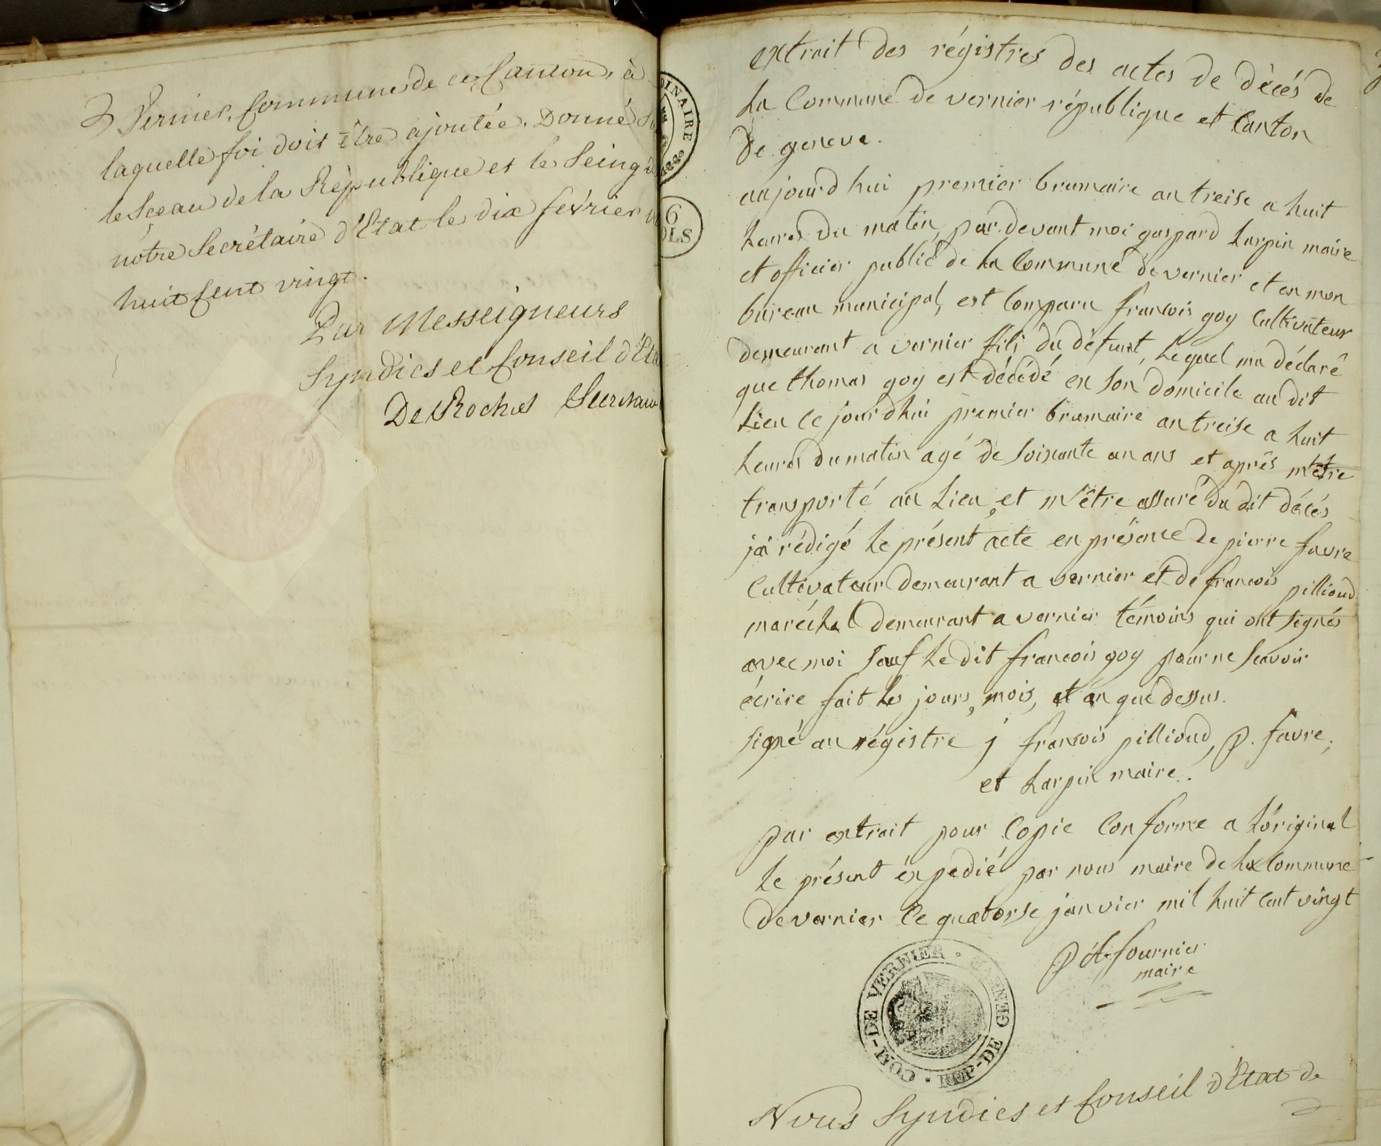 Vernier, Commune de ce Canton, à
laquelle foi doit être ajoutée. Donné
le Sceau de la République et le Seing
nôtre Secrétaire d'Etat le dix février
huit Cent vingt.
Par Messeigneurs
Syndics et Conseil d'Eta
De Roches Secretair
INAIRE
6
OLS
extrait des régistres des actes de décés de
la Commune de vernier république et Canton
de geneve.
aujourd hui premier brumaire an treise a huit
heures du matin, par devant moi gaspard harpin maire
et officier public de la Commune de vernier et en mon
bureau municipal, est Comparu francois goy Cultivateur
demeurant a vernier fils du defunt, lequel ma déclaré
que thomas goy est dédédé en son domicile au dit
Lieu ce jourdhui premier brumaire an treise a huit
heures du matin agé de soixante un ans et aprés m'etre
transporté au Lieu, et m'être assuré du dit décés
jai rédigé le présent acte en présence de pierre favre
Cultivateur demeurant a vernier et de francois pilliond
maréchal demeurant a vernier témoins qui ont signés
avec moi sauf le dit francois goy pour ne scavoir
écrire fait les jours, mois, et an que dessus.
signé au régistre j fransois pilliond, p. favre,
et harpin maire.
par extrait pour Copie Conforme a Loriginal
le présent éxpedié par nous maire de la Commune
de vernier le quatorse janvier mil huit cent vingt
fournier
maire
COM-DE VERNIER · REP-DE GENEVE
Nous Syndics et Conseil d'Etat de